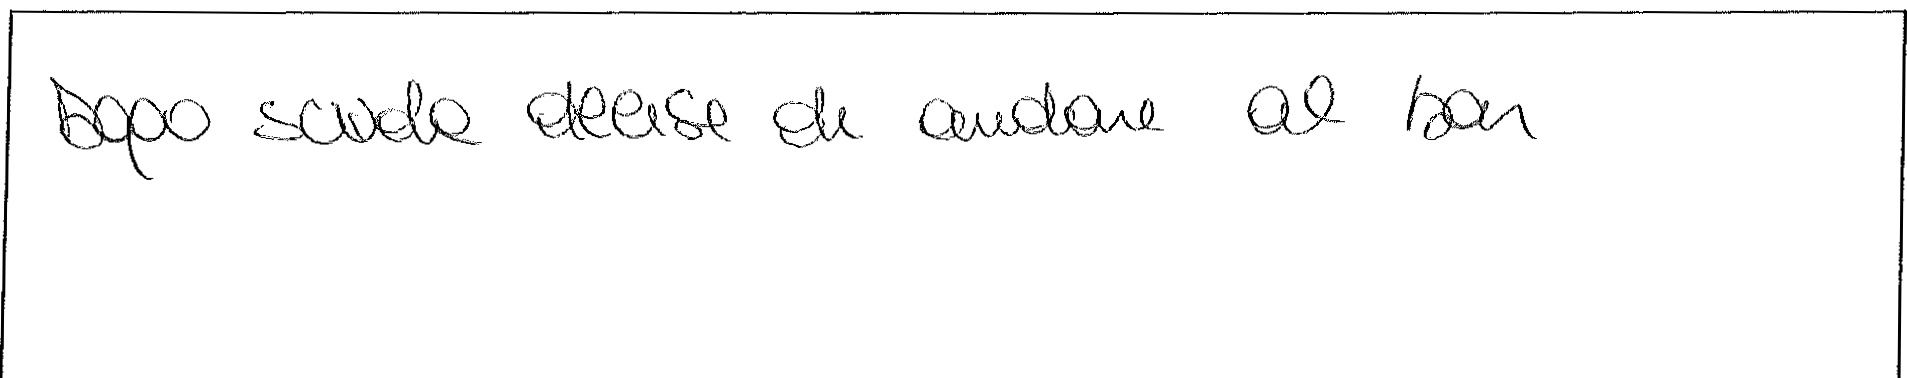 Dopo scuola decise di andare al bar